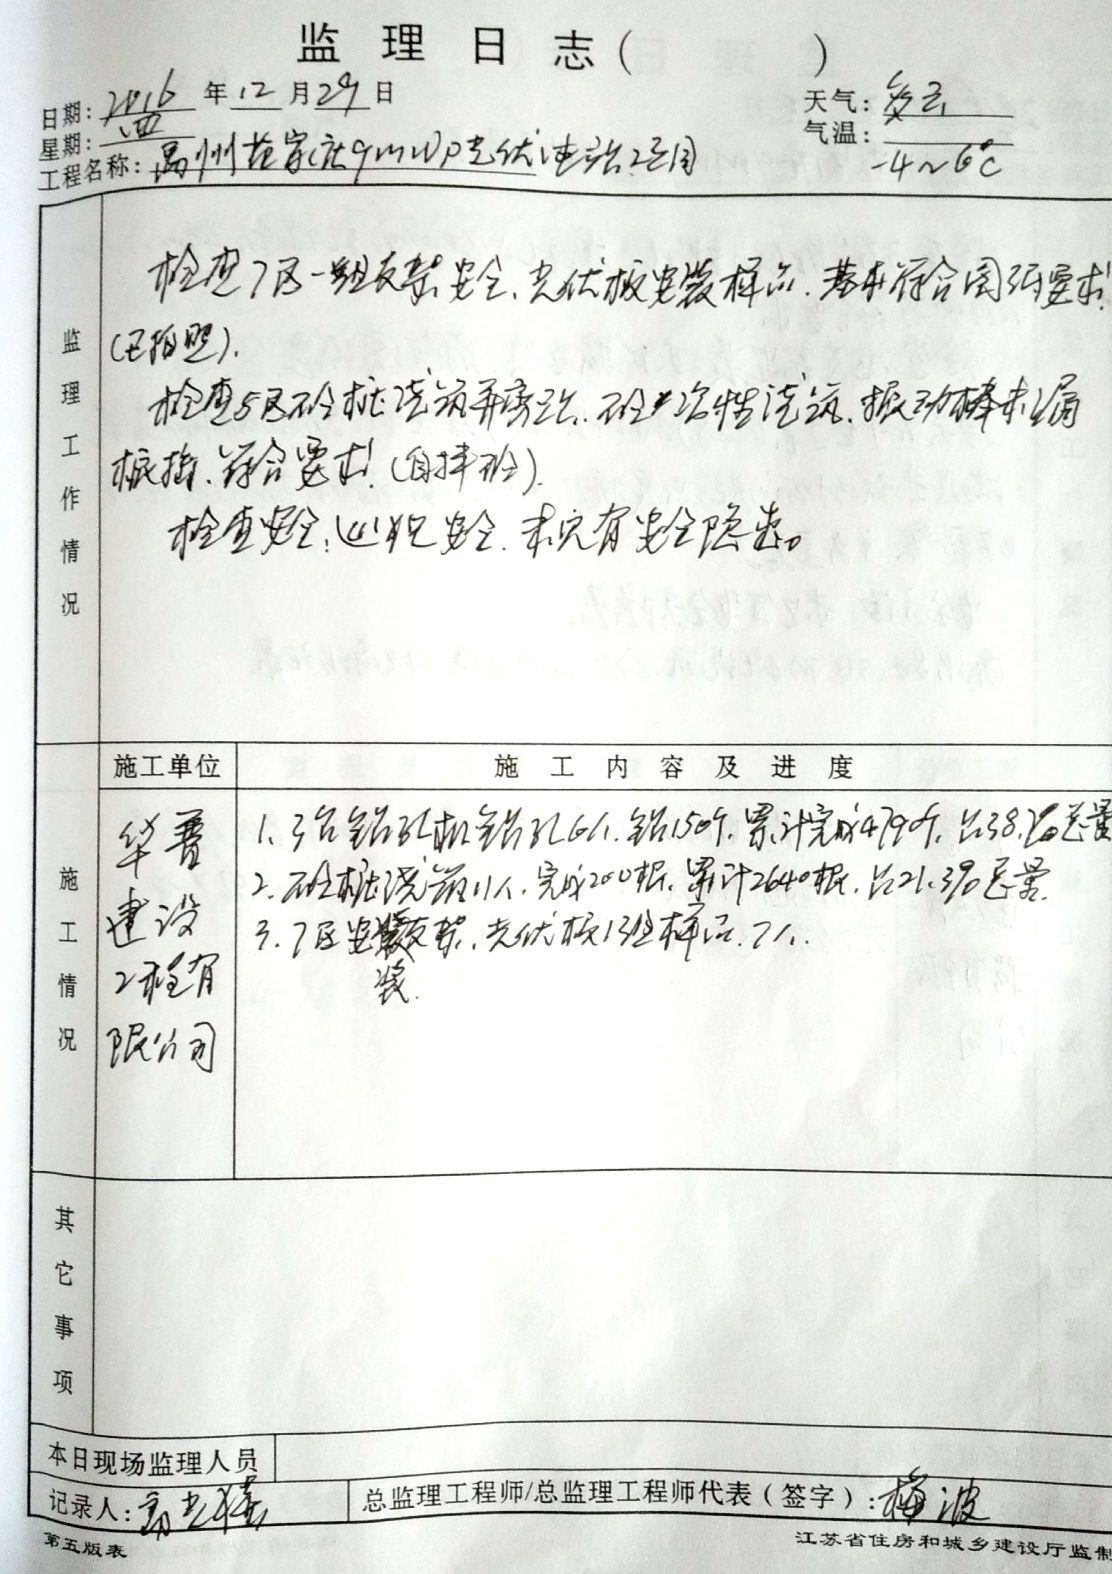 监理日志( )
日期: 2016 年 12 月 29 日
天气: 多云
星期: 四
气温: -4~6℃
工程名称: 高州范家庄9MWP光伏电站工程
监理工作情况
检查7区一组支架安全、光伏板安装样品,基本符合图纸要求
(已拍照).
检查5区砼桩浇筑并旁站,砼一次性浇筑,振动棒未漏
振捣,符合要求(自拌砼).
检查安全:巡视安全,未见有安全隐患。
施工单位
施工内容及进度
施工情况
华普
建设
工程有
限公司
1. 3台钻孔机钻孔6人,钻150个,累计完成4790个,占38.7%总量
2. 砼桩浇筑11人,完成200根,累计2640根,占21.3%总量.
3. 7区安装支架,光伏板1组样品,7人.
装.
其它事项
本日现场监理人员
记录人:
总监理工程师/总监理工程师代表(签字): 梅波
第五版表
江苏省住房和城乡建设厅监制